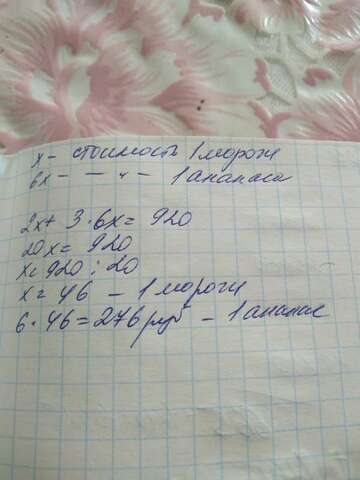 x - стоимость 1 морож
6x - — " — 1 ананаса
2x + 3·6x = 920
20x = 920
x = 920 : 20
x = 46 - 1 морож
6·46 = 276 руб - 1 ананас